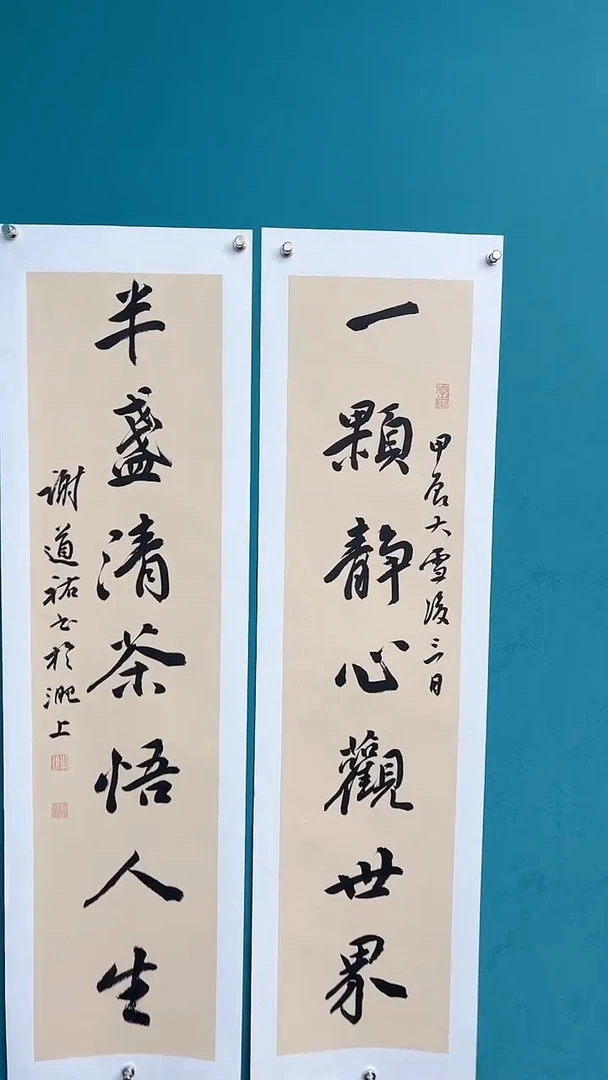 一顆静心觀世界
甲辰大雪後三日
半盞清茶悟人生
謝道祐书於淝上